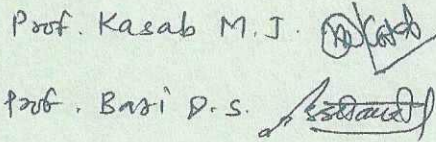 Prof. Kasab M.J.
Prof. Bari D.S.